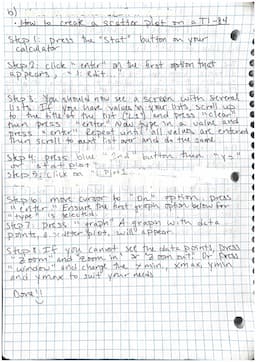 b)
• How to creat a scatter plot on a TI-84
Step 1: press the "Stat" button on your
calculator
Step 2: click "enter" on the first option that
appears, "1: Edit..."
Step 3: You should now see a screen with several
lists. If you have values in your lists, scroll up
to the title of the list (L1) and press "clear"
then press "enter". Now type in a value and
press "enter". Repeat until all values are entered
then scroll to next list over and do the same
Step 4: press blue "2nd" button then "y="
or "stat plot"
Step 5: click on "1: Plot1
Step 6: move cursor to "On" option, press
"enter". Ensure the first graph option below for
"type" is selected.
Step 7: press "graph" A graph with data
points, a scatter plot, will appear.
Step 8: If you cannot see the data points, press
"Zoom" and "Zoom in" & "Zoom out". Or press
"window" and change the xmin, xmax, ymin
and ymax to suit your needs
Done!